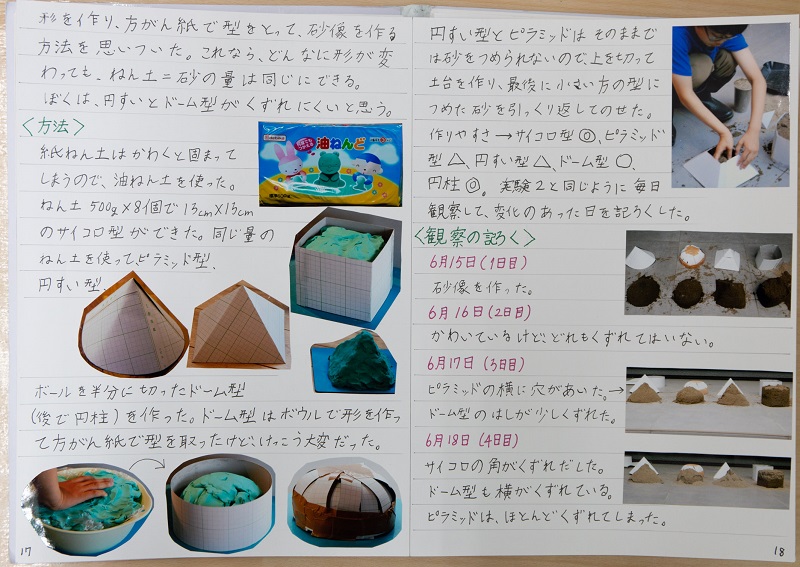 形を作り、方がん紙で型をとって、砂像を作る
方法を思いついた。これなら、どんなに形が変
わっても、ねん土＝砂の量は同じにできる。
ぼくは、円すいとドーム型がくずれにくいと思う。
〈方法〉
紙ねん土はかわくと固まって
しまうので、油ねん土を使った。
ねん土500g×8個で13cm×13cm
のサイコロ型ができた。同じ量の
ねん土を使ってピラミッド型、
円すい型、
油ねんど
ボールを半分に切ったドーム型
(後で円柱)を作った。ドーム型はボウルで形を作っ
て方がん紙で型を取ったけど、けっこう大変だった。
17
円すい型とピラミッドはそのままで
は砂をつめられないので、上を切って
土台を作り、最後に小さい方の型に
つめた砂を引っくり返してのせた。
作りやすさ→サイコロ型◎、ピラミッド
型△、円すい型△、ドーム型○、
円柱◎。実験2と同じように毎日
観察して、変化のあった日を記ろくした。
〈観察の記ろく〉
6月15日(1日目)
砂像を作った。
6月16日(2日目)
かわいているけど、どれもくずれてはいない。
6月17日(3日目)
ピラミッドの横に穴があいた。→
ドーム型のはしが少しくずれた。
6月18日(4日目)
サイコロの角がくずれだした。
ドーム型も横がくずれている。
ピラミッドは、ほとんどくずれてしまった。
18